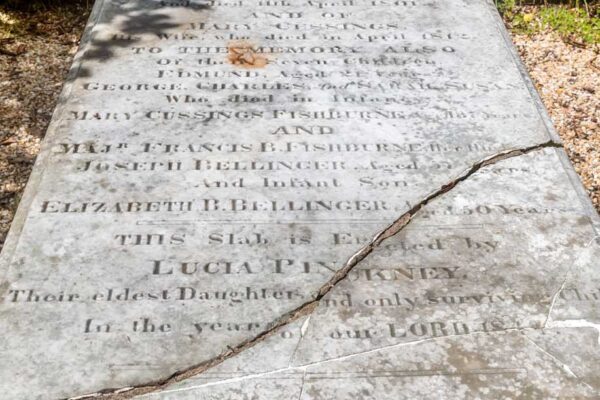 And Died 4th April 1801
AND OF
CUSSINGS
his Wife who died in April 1812.
TO THE MEMORY ALSO
Of their Seven Children
EDMUND, Aged
GEORGE, CHARLES, and SARAH SUSAN
Who died in Infancy
MARY CUSSINGS FISHBURNE
AND
MAJR FRANCIS B. FISHBURNE
JOSEPH BELLINGER, Aged Years
And Infant Son.
ELIZABETH B. BELLINGER, Aged 50 Years
THIS Slab is Erected by
LUCIA PINCKNEY,
Their eldest Daughter, and only surviving
In the year of our LORD